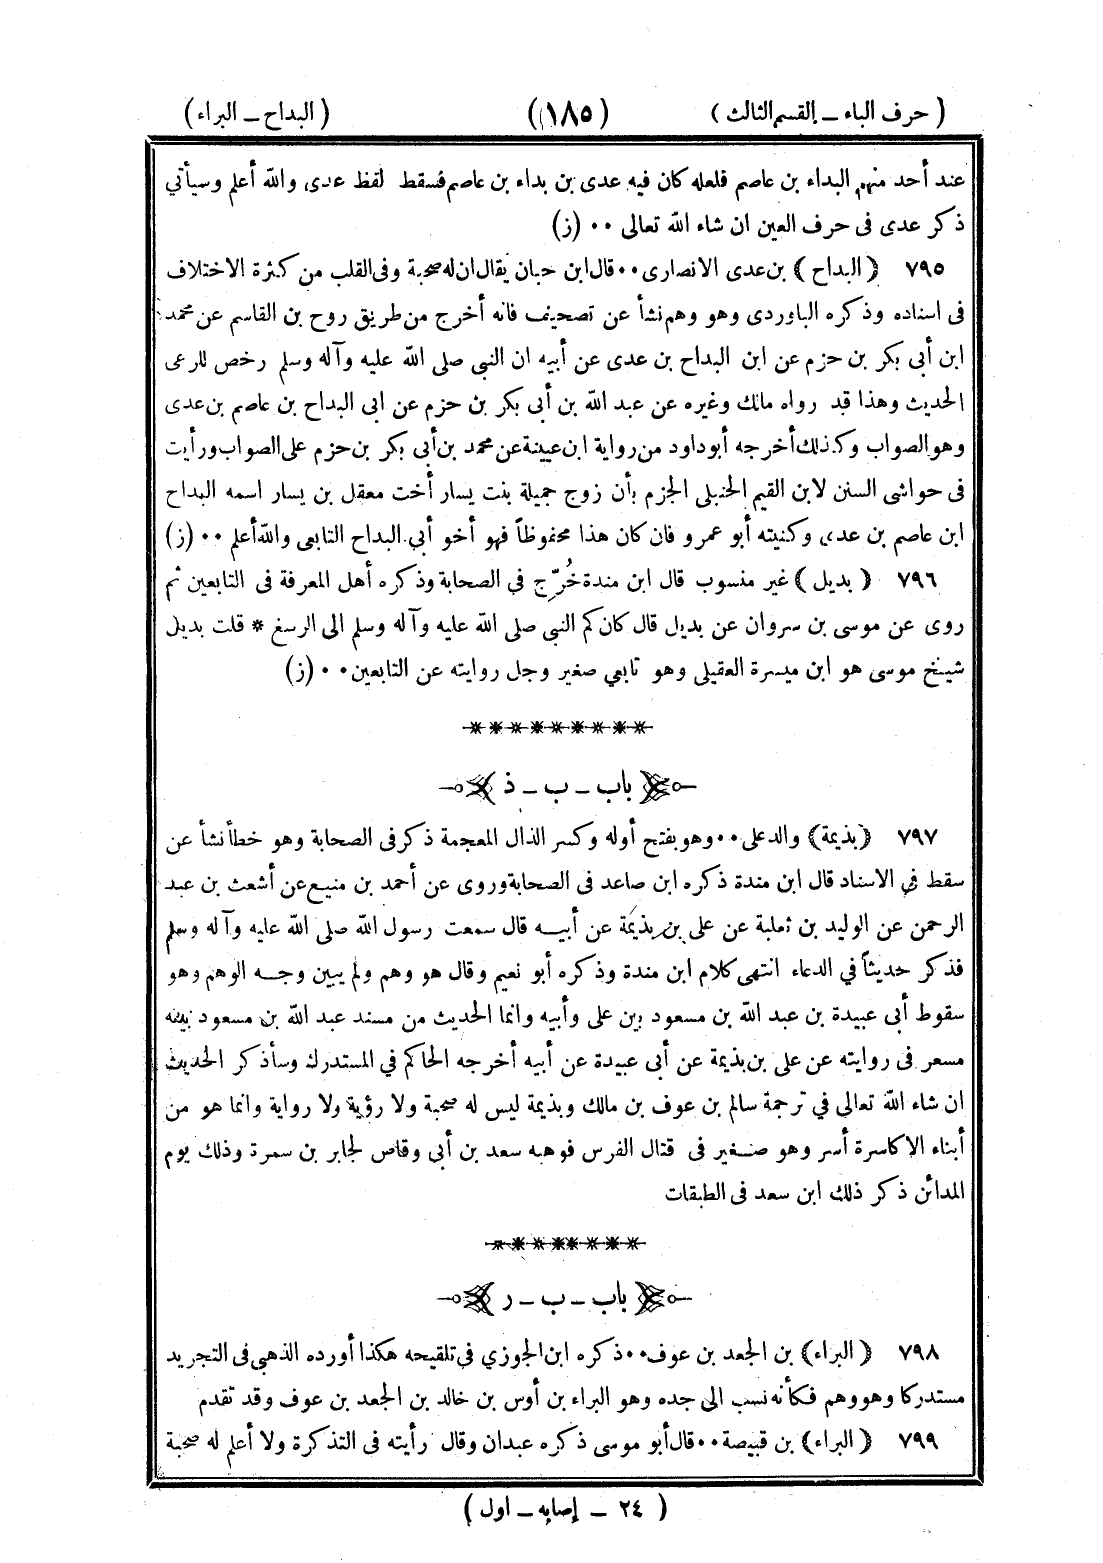 ( حرف الباء ـ القسم الثالث ) (١٨٥) ( البداح ـ البراء )
عند أحد منهم البداء بن عاصم فلعله كان فيه عدى بن بداء بن عاصم فسقط لفظ عدى والله أعلم وسيأتي
ذكر عدى فى حرف العين ان شاء الله تعالى ٠٠ (ز)
٧٩٥ ( البداح ) بن عدى الانصارى ٠٠ قال ابن حبان يقال ان له صحبة وفى القلب من كثرة الاختلاف
فى اسناده وذكره الباوردى وهو وهم نشأ عن تصحيف فانه أخرج من طريق روح بن القاسم عن محمد
ابن أبى بكر بن حزم عن ابن البداح بن عدى عن أبيه ان النبي صلى الله عليه وآله وسلم رخص للرعى
الحديث وهذا قد رواه مالك وغيره عن عبد الله بن أبى بكر بن حزم عن ابى البداح بن عاصم بن عدى
وهو الصواب وكذلك أخرجه أبو داود من رواية ابن عيينة عن محمد بن أبى بكر بن حزم على الصواب ورأيت
فى حواشى السنن لابن القيم الحنبلى الجزم بأن زوج جميلة بنت يسار أخت معقل بن يسار اسمه البداح
ابن عاصم بن عدى وكنيته أبو عمرو فان كان هذا محفوظاً فهو أخو أبي البداح التابعى والله أعلم ٠٠ (ز)
٧٩٦ ( بديل ) غير منسوب قال ابن مندة خُرِّج في الصحابة وذكره أهل المعرفة فى التابعين ثم
روى عن موسى بن سروان عن بديل قال كان كم النبي صلى الله عليه وآله وسلم الى الرسغ * قلت بديل
شيخ موسى هو ابن ميسرة العقيلى وهو تابعي صغير وجل روايته عن التابعين ٠٠ (ز)
باب ـ ب ـ ذ
٧٩٧ ( بذيمة ) والد على ٠٠ وهو بفتح أوله وكسر الذال المعجمة ذكر فى الصحابة وهو خطأ نشأ عن
سقط في الاسناد قال ابن مندة ذكره ابن صاعد فى الصحابة وروى عن أحمد بن منيع عن أشعث بن عبد
الرحمن عن الوليد بن ثعلبة عن على بن بذيمة عن أبيه قال سمعت رسول الله صلى الله عليه وآله وسلم
فذكر حديثاً في الدعاء انتهى كلام ابن مندة وذكره أبو نعيم وقال هو وهم ولم يبين وجه الوهم وهو
سقوط أبى عبيدة بن عبد الله بن مسعود بين على وأبيه وانما الحديث من مسند عبد الله بن مسعود بينه
مسعر فى روايته عن على بن بذيمة عن أبى عبيدة عن أبيه أخرجه الحاكم في المستدرك وسأذكر الحديث
ان شاء الله تعالى في ترجمة سالم بن عوف بن مالك وبذيمة ليس له صحبة ولا رؤية ولا رواية وانما هو من
أبناء الاكاسرة أسر وهو صغير فى قتال الفرس فوهبه سعد بن أبى وقاص لجابر بن سمرة وذلك يوم
المدائن ذكر ذلك ابن سعد فى الطبقات
باب ـ ب ـ ر
٧٩٨ ( البراء ) بن الجعد بن عوف ٠٠ ذكره ابن الجوزي فى تلقيحه هكذا أورده الذهبى فى التجريد
مستدركا وهو وهم فكأنه نسب الى جده وهو البراء بن أوس بن خالد بن الجعد بن عوف وقد تقدم
٧٩٩ ( البراء ) بن قبيصة ٠٠ قال أبو موسى ذكره عبدان وقال رأيته فى التذكرة ولا أعلم له صحبة
( ٢٤ ـ إصابه ـ اول )